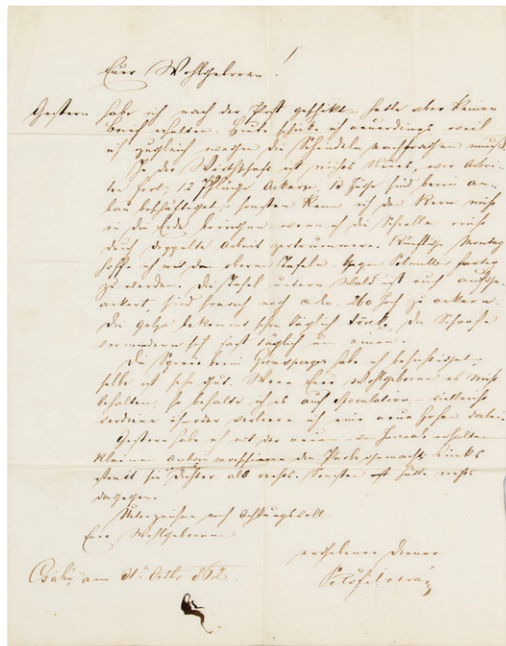 Euer Wohlgeboren!
Gestern habe ich nach der Post geschikt, hatte aber keinen
Brief erhalten. Heute schike ich neuerdings weil
ich zugleich wegen die Schindeln nachfragen muß
In der Wirthschaft ist nichts Neues, wir arbei-
ten fort, 12 Pflüge Ackern, 10 Züge sind beim An-
bau beschäftiget; sonsten kann ich den Kern nicht
in die Erde bringen wenn ich die Schrollen nicht
durch doppelte Arbeit zertrümmere. Künftigen Montag
hoffe ich mit den oberen Tafeln fertig
zu werden. Die Tafel untern Wald ist auch aufge-
ackert, sind hernach noch 260 Joch zu ackern.
Die bekommt schon täglich, die Schaafe
vermindern sich fast täglich um einen.
Die beim habe ich besichtiget
selbe ist sehr gut. Wenn Euer Wohlgeboren es nicht
behalten, so behalte ich es auf Speculation, vielleicht
verdiene ich oder verliere ich eine neue Hosen dabei.
Gestern habe ich mit der neuen von erhaltenen
kleinen Anbau maschiene die Probe gemacht, Links
streut sie dichter als rechts. Sonsten ist nichts
dagegen.
Unterzeichne mich Achtungsvoll.
Euer Wohlgeboren
ergebener Diener
Csákó am 31t Octbr 862.